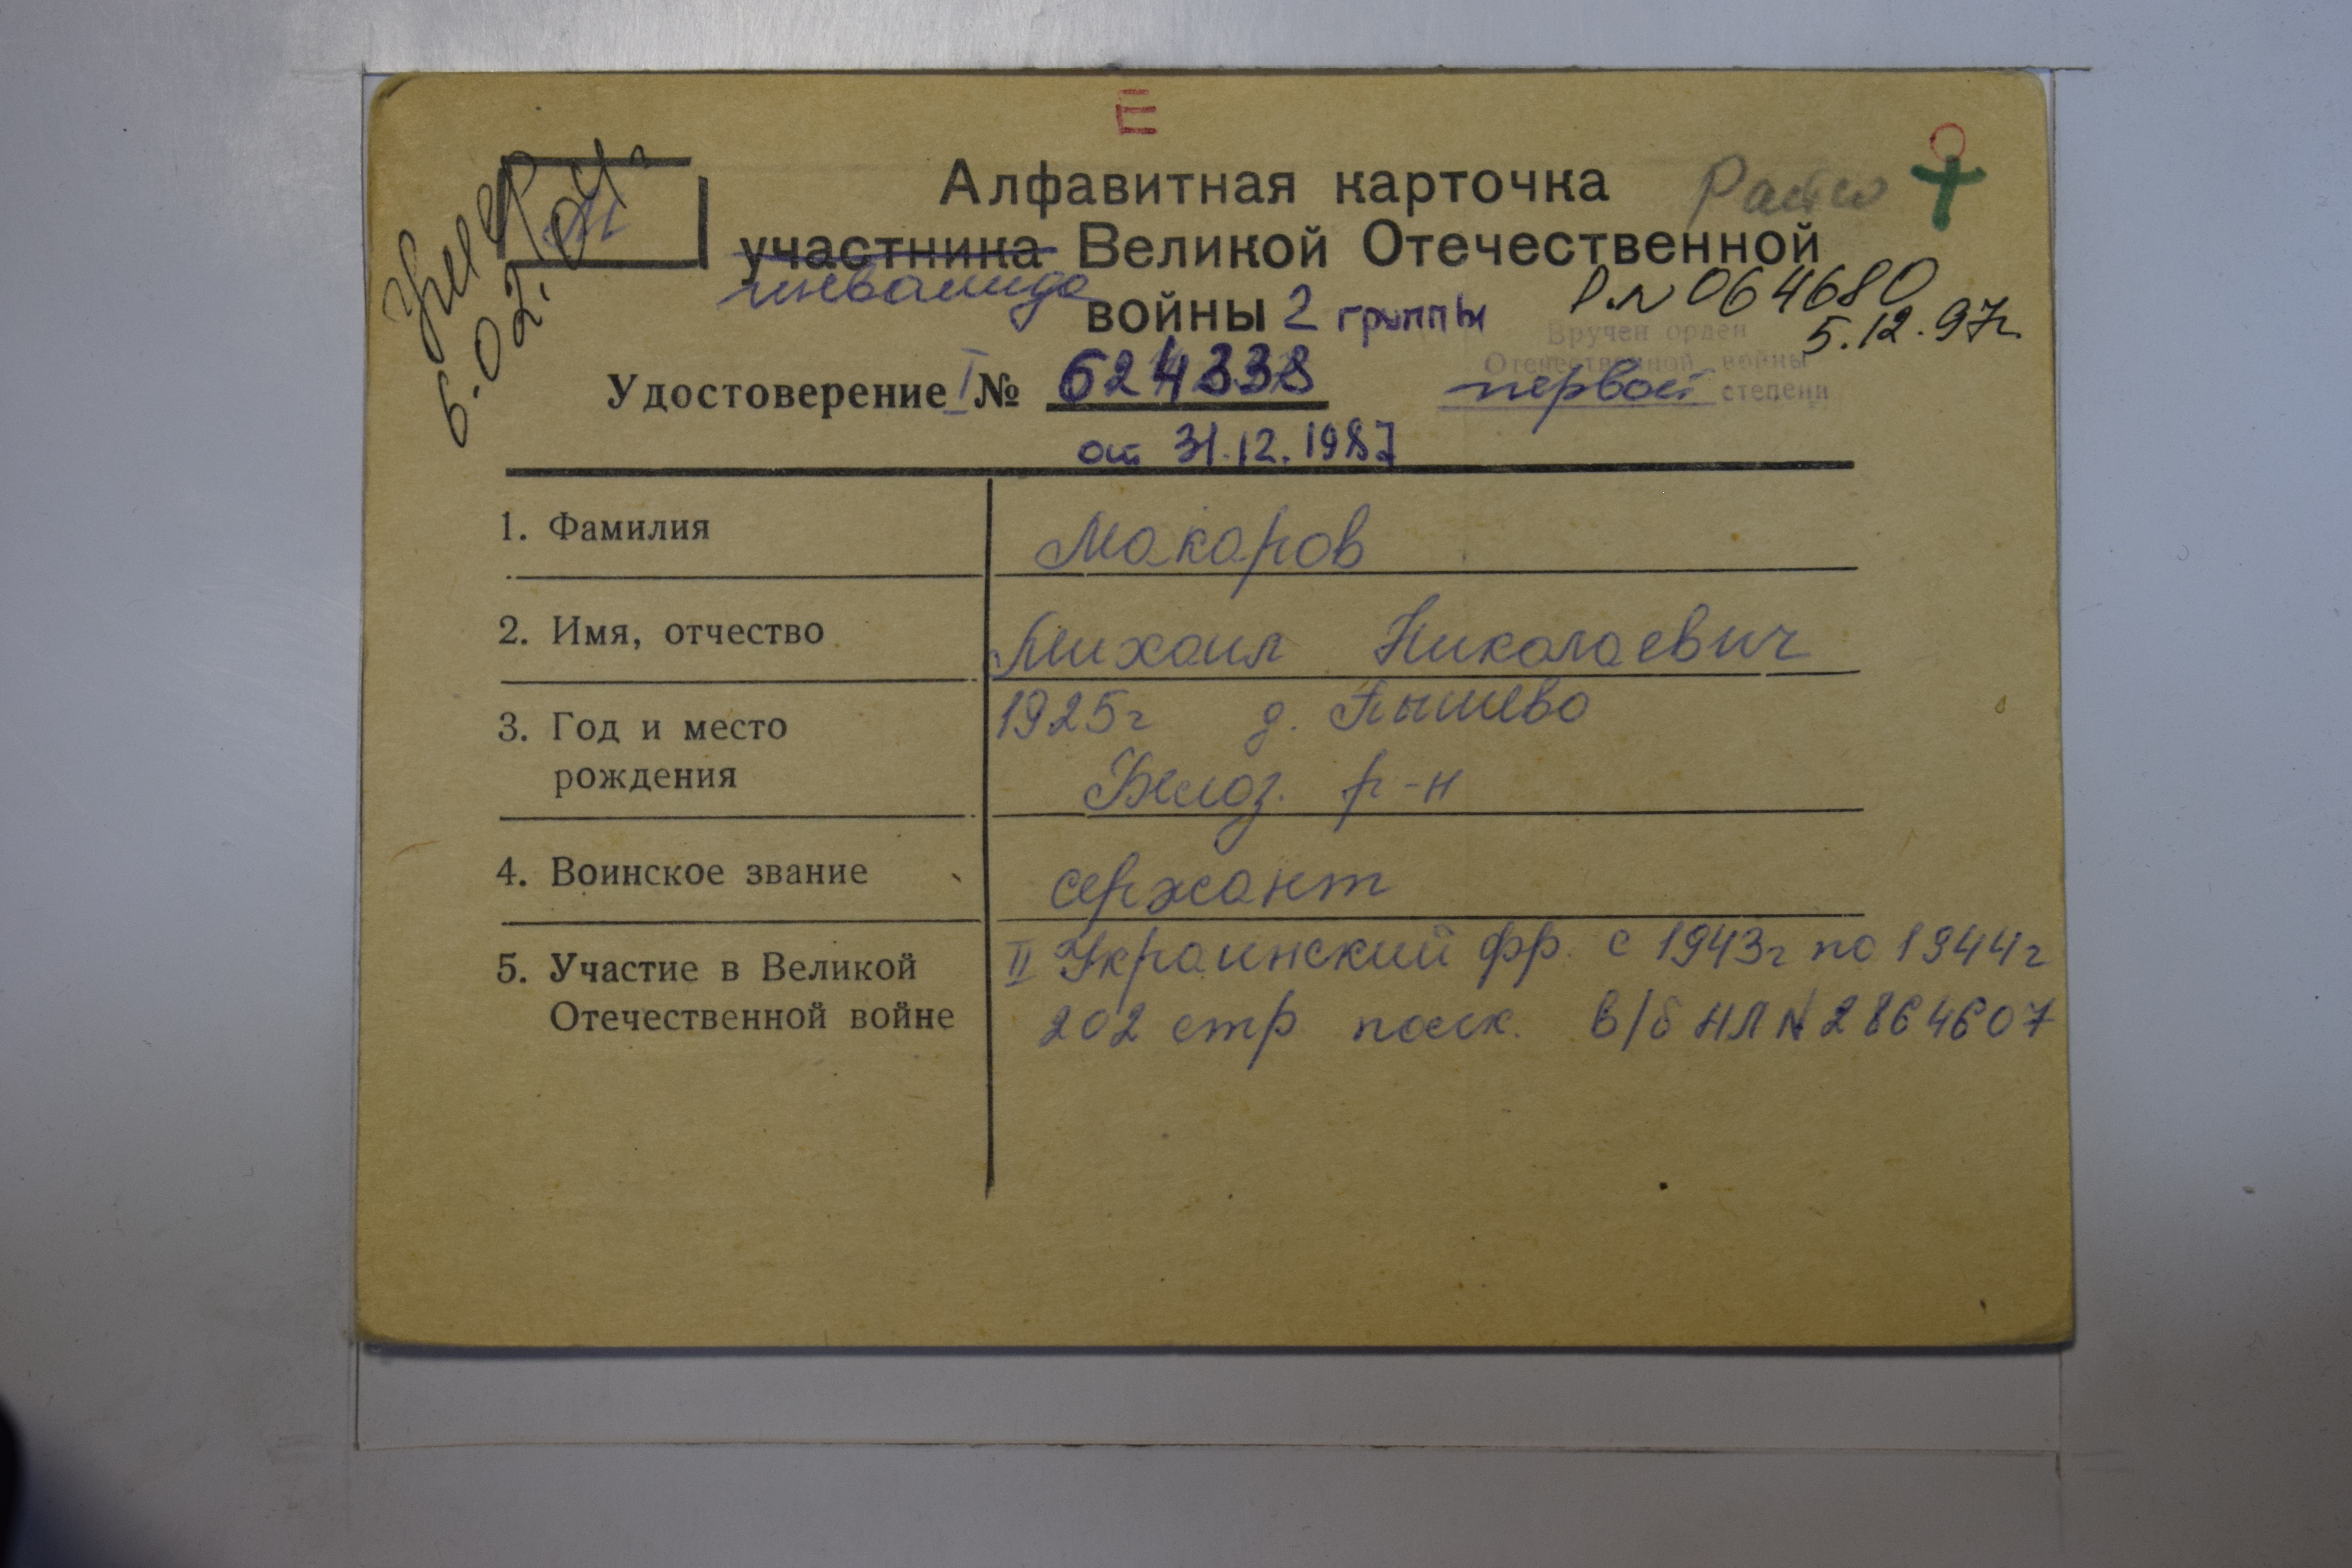 Е
умер
6.02.04г
М
Алфавитная карточка
участника Великой Отечественной
инвалида
войны 2 группы
Р.N 064680
5.12.97г.
Вручен орден
Отечественной войны
первой степени
Удостоверение I № 624338
от 31.12.1987
1. Фамилия
Макаров
2. Имя, отчество
Михаил Николаевич
3. Год и место
рождения
1925г д.
Белоз. р-н
4. Воинское звание
сержант
5. Участие в Великой
Отечественной войне
II Украинский фр. с 1943г по 1944г
202 стр полк. в/б НЛ N 2864607